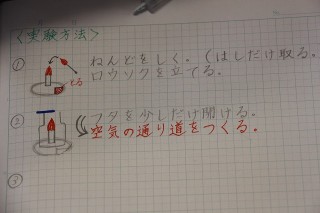 〈実験方法〉
① ねんどをしく。(はしだけ取る。
とる
ロウソクを立てる。
② フタを少しだけ開ける。
空気の通り道をつくる。
③